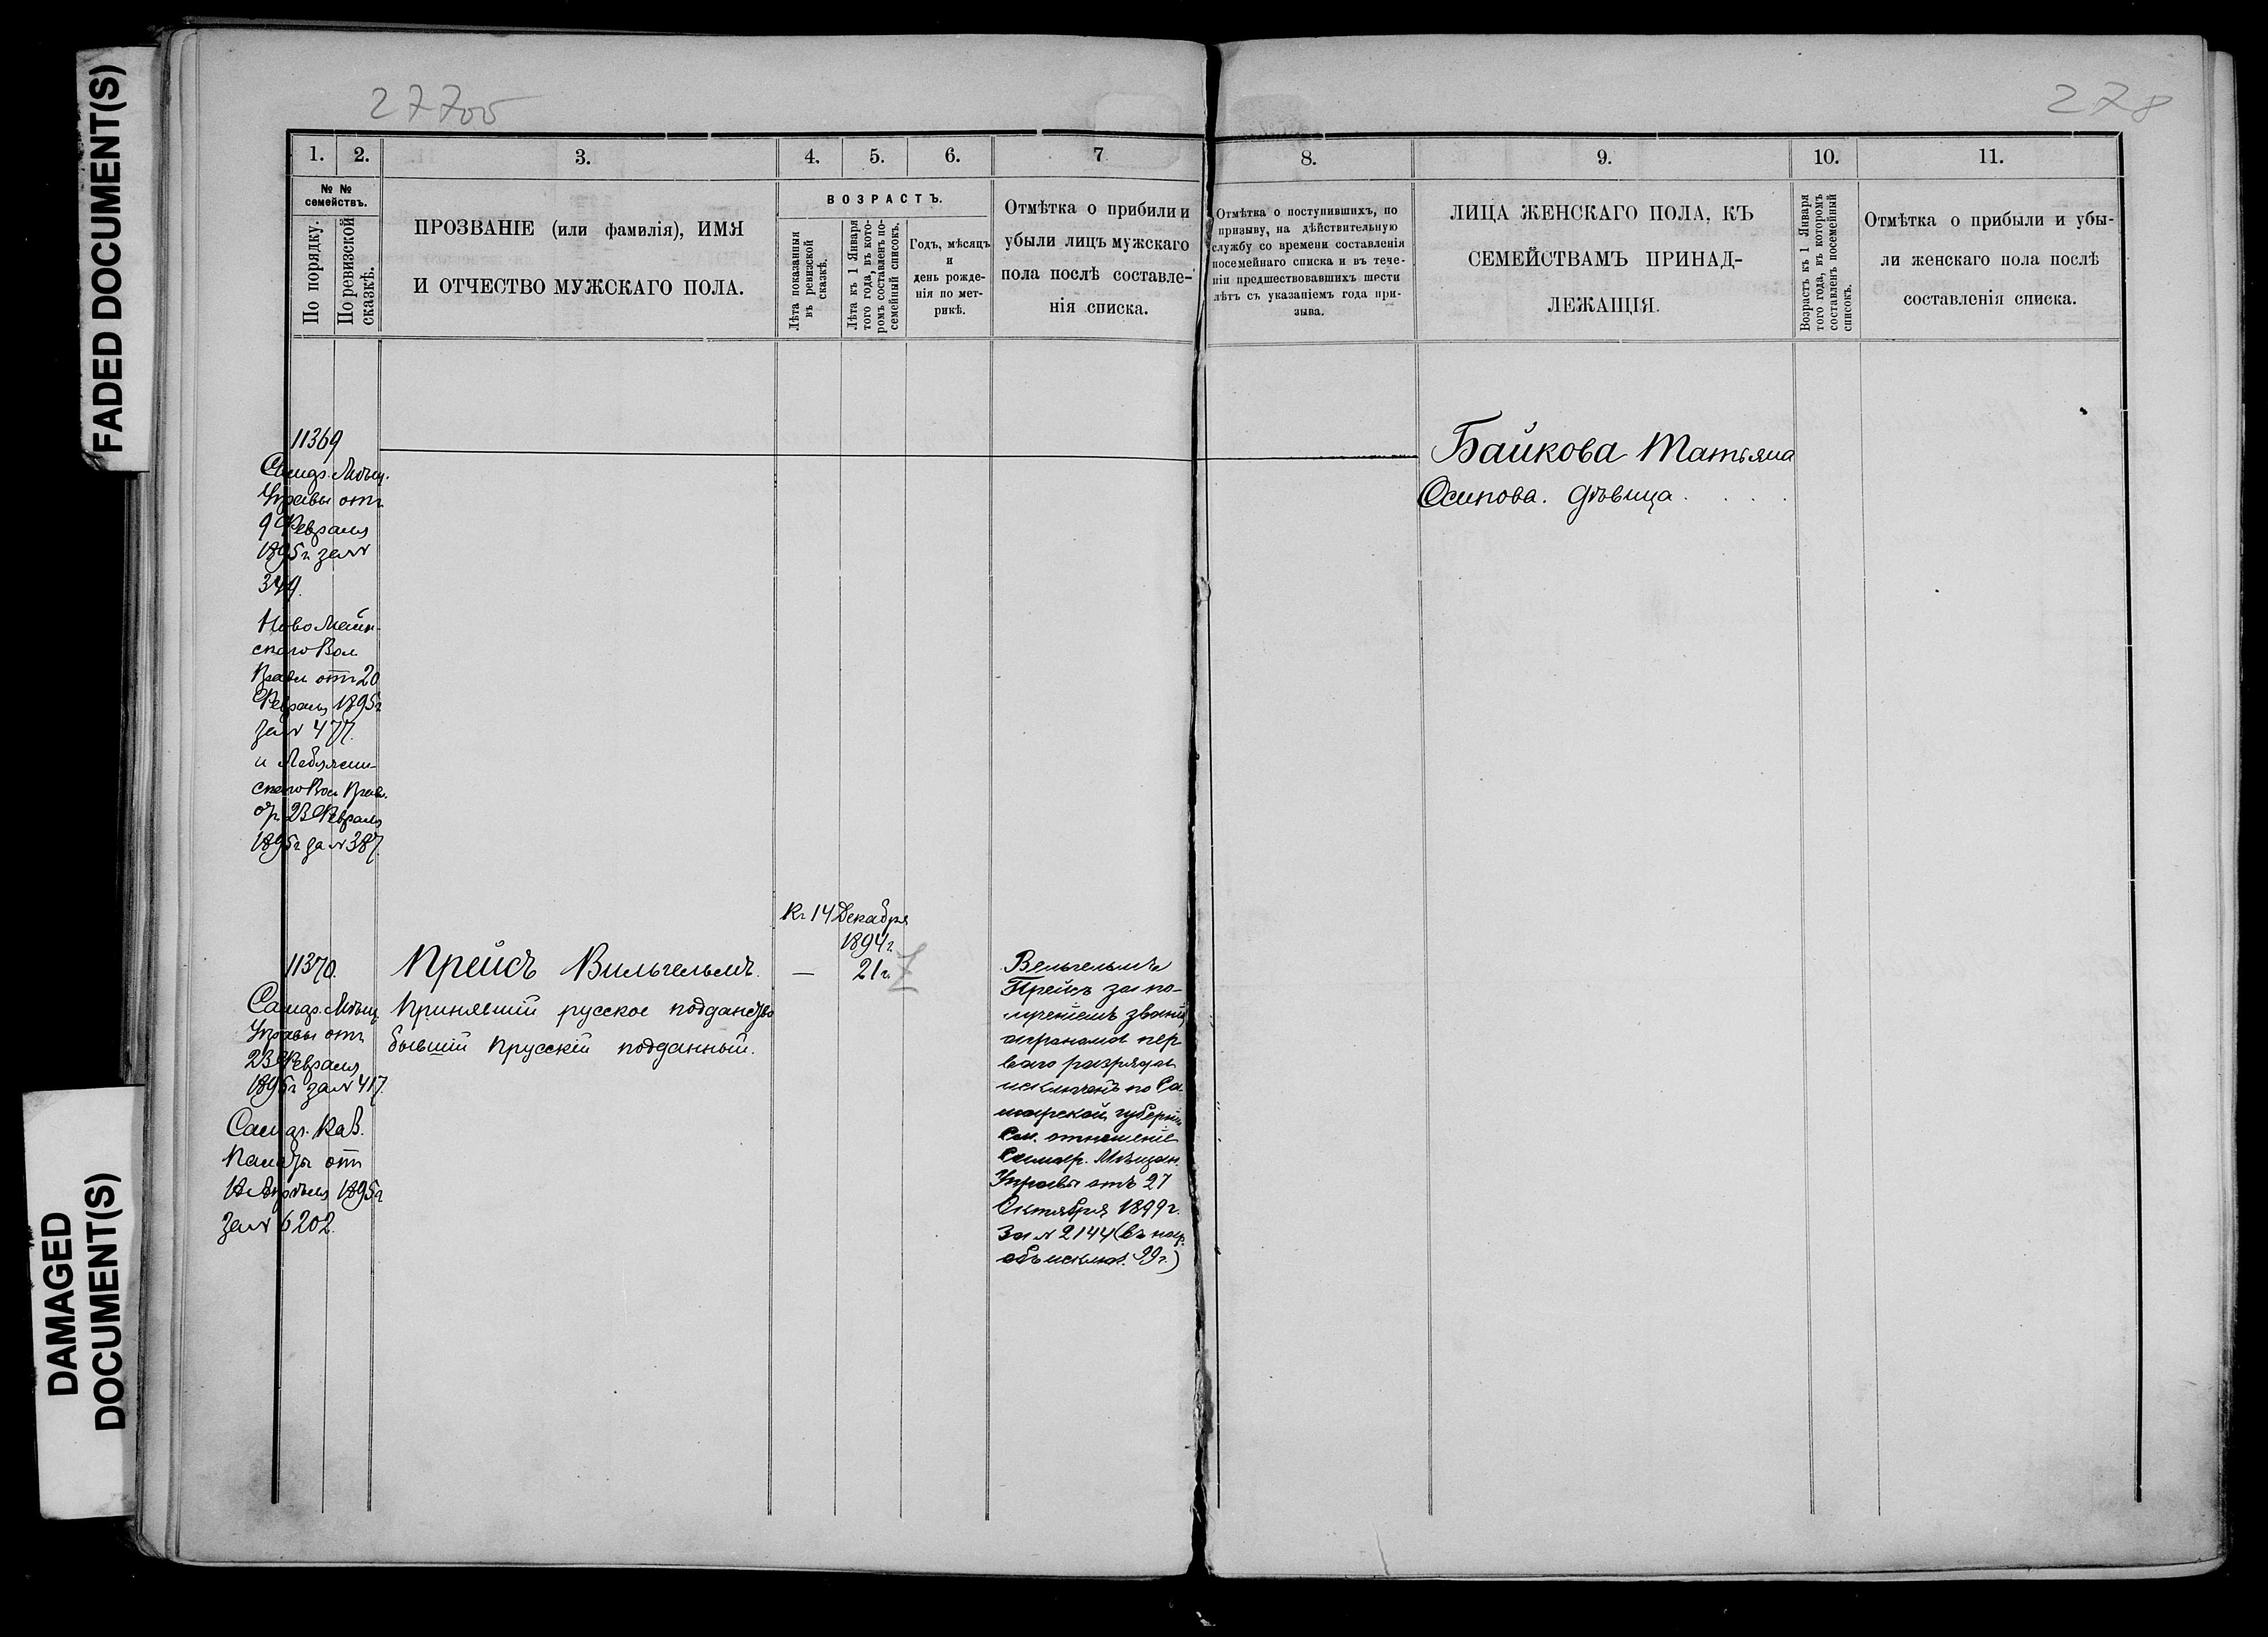 FADED DOCUMENT(S)
DAMAGED
DOCUMENT(S)
277об
278
1. 2. 3. 4. 5. 6. 7 8. 9. 10. 11.
№ №
семействъ.
По порядку.
По ревизской
сказкѣ.
ПРОЗВАНІЕ (или фамилія), ИМЯ
И ОТЧЕСТВО МУЖСКАГО ПОЛА.
ВОЗРАСТЪ.
Лѣта показанныя
въ ревизской
сказкѣ.
Лѣта къ 1 Января
того года, въ кото-
ромъ составленъ по-
семейный списокъ.
Годъ, мѣсяцъ
и
день рожде-
нія по мет-
рикѣ.
Отмѣтка о прибили и
убыли лицъ мужскаго
пола послѣ составле-
нія списка.
Отмѣтка о поступившихъ, по
призыву, на дѣйствительную
службу со времени составленія
посемейнаго списка и въ тече-
ніи предшествовавшихъ шести
лѣтъ съ указаніемъ года при-
зыва.
ЛИЦА ЖЕНСКАГО ПОЛА, КЪ
СЕМЕЙСТВАМЪ ПРИНАД-
ЛЕЖАЩІЯ.
Возрастъ къ 1 Января
того года, въ которомъ
составленъ посемейный
списокъ.
Отмѣтка о прибыли и убы-
ли женскаго пола послѣ
составленія списка.
11369
Самар. Мѣщ.
Управы отъ
9 Февраля
1895г за №
349.
Ново Маин-
скаго Вол
Правл отъ 20
Февраля 1895г
за № 477.
и Лебяжин-
скаго Вол Прав.
от 23 Февраля
1895г за № 387.
Байкова Татьяна
Осипова. дѣвица . . . .
Къ 14 Декабря
1894г.
11370.
Прейсъ Вильгельмъ. — 21г.
Самар. Мѣщ.
Управы отъ
23 Февраля
1895г за № 417.
Самар. Каз.
Палаты отъ
Апрѣля 1895г
за № 6202.
Принявшій русское подданство
бывшій Прусскій подданный.
Вельгельмъ
Прейсъ за по-
лученіемъ званія
агранома пер
ваго разряда
исключенъ по Са-
марской губерніи
См. отношеніе
Самар. Мѣщан.
Управы отъ 27
Октября 1899г.
За № 2144 (въ нар.
объ исключ. 99г.)